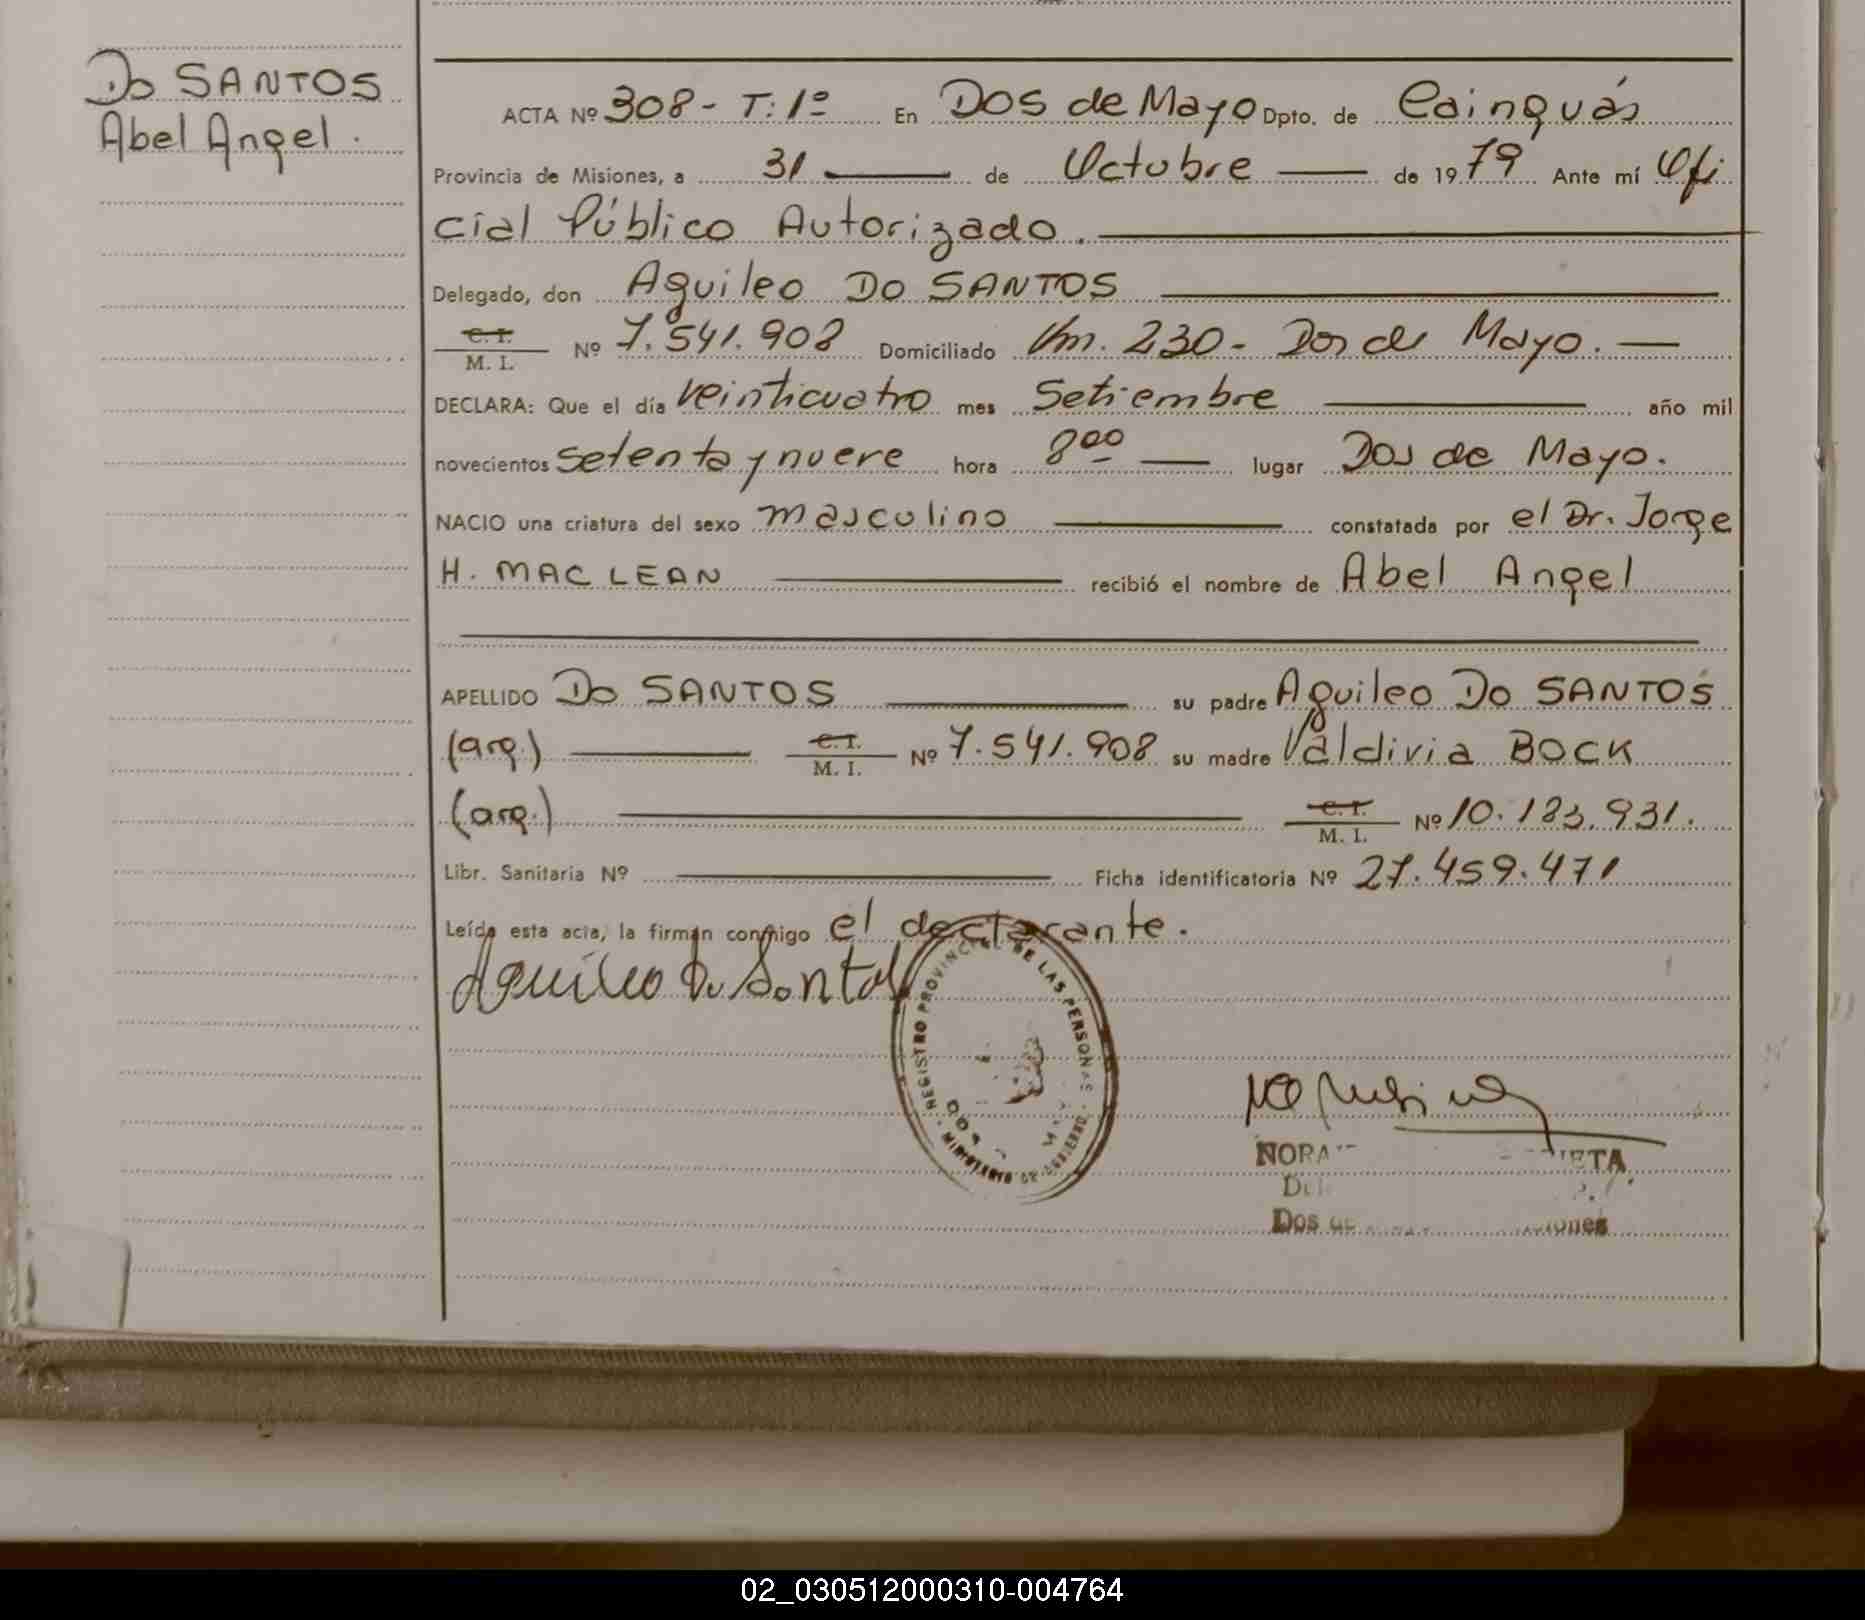 Do SANTOS
Abel Angel.
ACTA Nº 308 - T: 1º En Dos de Mayo Dpto. de Cainguás
Provincia de Misiones, a 31 de Octubre de 1979 Ante mí Ofi
cial Público Autorizado.
Delegado, don Aguileo Do SANTOS
C. I. / M. I. Nº 7.541.908 Domiciliado Km. 230 - Dos de Mayo.
DECLARA: Que el día veinticuatro mes Setiembre año mil
novecientos setenta y nueve hora 8 00 lugar Dos de Mayo.
NACIO una criatura del sexo masculino constatada por el Dr. Jorge
H. MAC LEAN recibió el nombre de Abel Angel
APELLIDO Do SANTOS su padre Aguileo Do SANTOS
(arg.) C. I. / M. I. Nº 7.541.908 su madre Valdivia BOCK
(arg.) C. I. / M. I. Nº 10.183.931.
Libr. Sanitaria Nº Ficha identificatoria Nº 27.459.471
Leída esta acta, la firman conmigo el declarante.
Aguileo Do Santos
REGISTRO PROVINCIAL DE LAS PERSONAS
MINISTERIO DE GOBIERNO
NORA
Dos
02_030512000310-004764